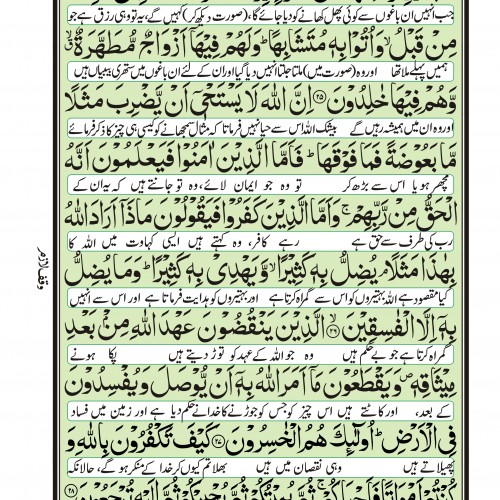 جب انہیں ان باغوں سے کوئی پھل کھانے کو دیا جائے گا، (صورت دیکھ کر) کہیں گے، یہ تو وہی رزق ہے جو
مِنْ قَبْلُ ۙ وَاُتُوْا بِهٖ مُتَشَابِهًا ؕ وَلَهُمْ فِيْهَاۤ اَزْوَاجٌ مُّطَهَّرَةٌ ۙ
ہمیں پہلے ملا تھا اور وہ (صورت میں) ملتا جلتا انہیں دیا گیا اور ان کے لئے ان باغوں میں ستھری بیبیاں ہیں
وَّهُمْ فِيْهَا خٰلِدُوْنَ ﴿۲۵﴾ اِنَّ اللّٰهَ لَا يَسْتَحْيٖۤ اَنْ يَّضْرِبَ مَثَلًا
اور وہ ان میں ہمیشہ رہیں گے بیشک اللہ اس سے حیا نہیں فرماتا کہ مثال سمجھانے کو کیسی ہی چیز کا ذکر فرمائے
مَّا بَعُوْضَةً فَمَا فَوْقَهَا ؕ فَاَمَّا الَّذِيْنَ اٰمَنُوْا فَيَعْلَمُوْنَ اَنَّهُ
مچھر ہو یا اس سے بڑھ کر تو وہ جو ایمان لائے، وہ تو جانتے ہیں کہ یہ ان کے
الْحَقُّ مِنْ رَّبِّهِمْ ۚ وَاَمَّا الَّذِيْنَ كَفَرُوْا فَيَقُوْلُوْنَ مَاذَاۤ اَرَادَ اللّٰهُ
رب کی طرف سے حق ہے رہے کافر، وہ کہتے ہیں ایسی کہاوت میں اللہ کا
بِهٰذَا مَثَلًا ۘ يُضِلُّ بِهٖ كَثِيْرًا ۙ وَّيَهْدِيْ بِهٖ كَثِيْرًا ؕ وَمَا يُضِلُّ
کیا مقصود ہے اللہ بہتیروں کو اس سے گمراہ کرتا ہے اور بہتیروں کو ہدایت فرماتا ہے اور اس سے انہیں
بِهٖۤ اِلَّا الْفٰسِقِيْنَ ﴿۲۶﴾ الَّذِيْنَ يَنْقُضُوْنَ عَهْدَ اللّٰهِ مِنْۢ بَعْدِ
گمراہ کرتا ہے جو بے حکم ہیں وہ جو اللہ کے عہد کو توڑ دیتے ہیں پکا ہونے
مِيْثَاقِهٖ ۪ وَيَقْطَعُوْنَ مَاۤ اَمَرَ اللّٰهُ بِهٖۤ اَنْ يُّوْصَلَ وَيُفْسِدُوْنَ
کے بعد، اور کاٹتے ہیں اس چیز کو جس کو جوڑنے کا خدا نے حکم دیا ہے اور زمین میں فساد
فِي الْاَرْضِ ؕ اُولٰٓئِكَ هُمُ الْخٰسِرُوْنَ ﴿۲۷﴾ كَيْفَ تَكْفُرُوْنَ بِاللّٰهِ وَ
پھیلاتے ہیں وہی نقصان میں ہیں بھلا تم کیوں کر خدا کے منکر ہو گے، حالانکہ
كُنْتُمْ اَمْوَاتًا فَاَحْيَاكُمْ ۚ ثُمَّ يُمِيْتُكُمْ ثُمَّ يُحْيِيْكُمْ ثُمَّ اِلَيْهِ تُرْجَعُوْنَ ﴿۲۸﴾
وقف لازم